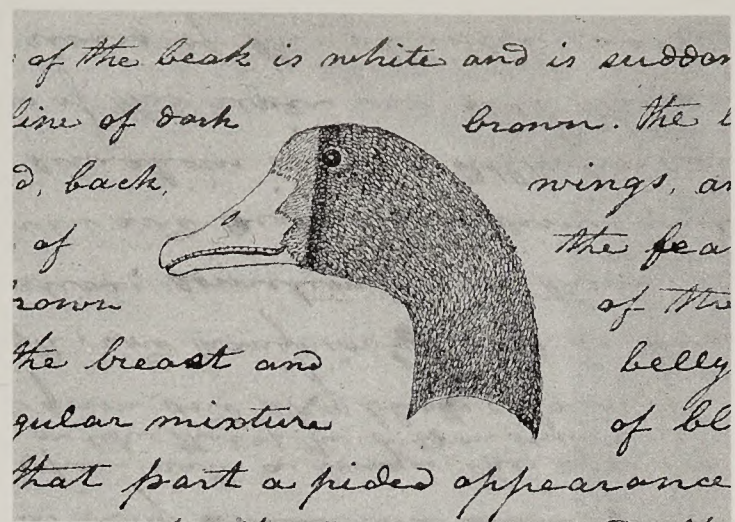 of the beak is white and is
line of dark brown. the
back, wings,
of the
of the
the breast and belly
mixture of
that part a pided appearance